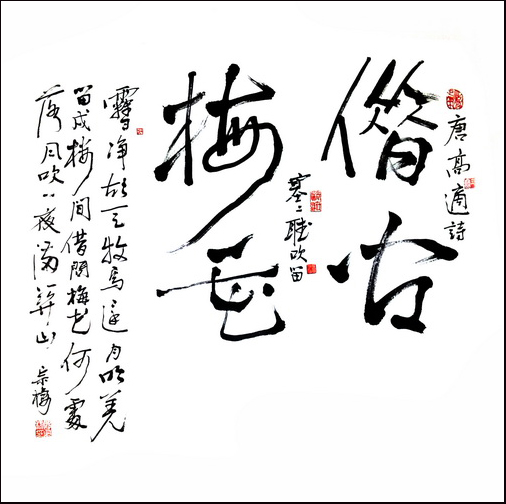 唐高適詩
借古
塞上聽吹笛
梅花
雪净胡天牧馬還月明羌
笛戍樓間借問梅花何處
落風吹一夜滿關山